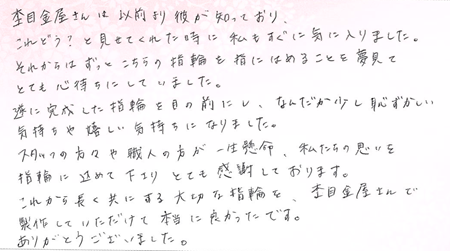 杢目金屋さんは以前より彼が知っており、
これどう？と見せてくれた時に私もすぐに気に入りました。
それからはずっとこちらの指輪を指にはめることを夢見て
とても心待ちにしていました。
遂に完成した指輪を目の前にし、なんだか少し恥ずかしい
気持ちや嬉しい気持ちになりました。
スタッフの方々や職人の方が一生懸命、私たちの思いを
指輪に込めて下さりとても感謝しております。
これから長く共にする大切な指輪を、杢目金屋さんで
製作していただけて本当に良かったです。
ありがとうございました。